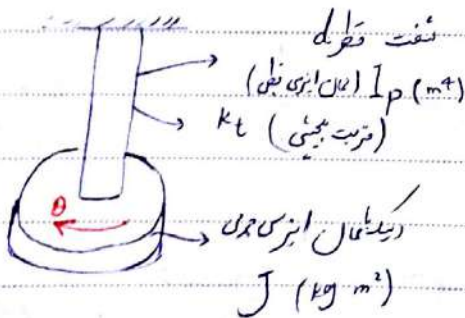 شفت قطر d
(ممان اینرسی قطبی) Ip (m⁴)
kt (ضریب پیچشی)
θ
دیسک با ممان اینرسی جرمی
J (kg m²)